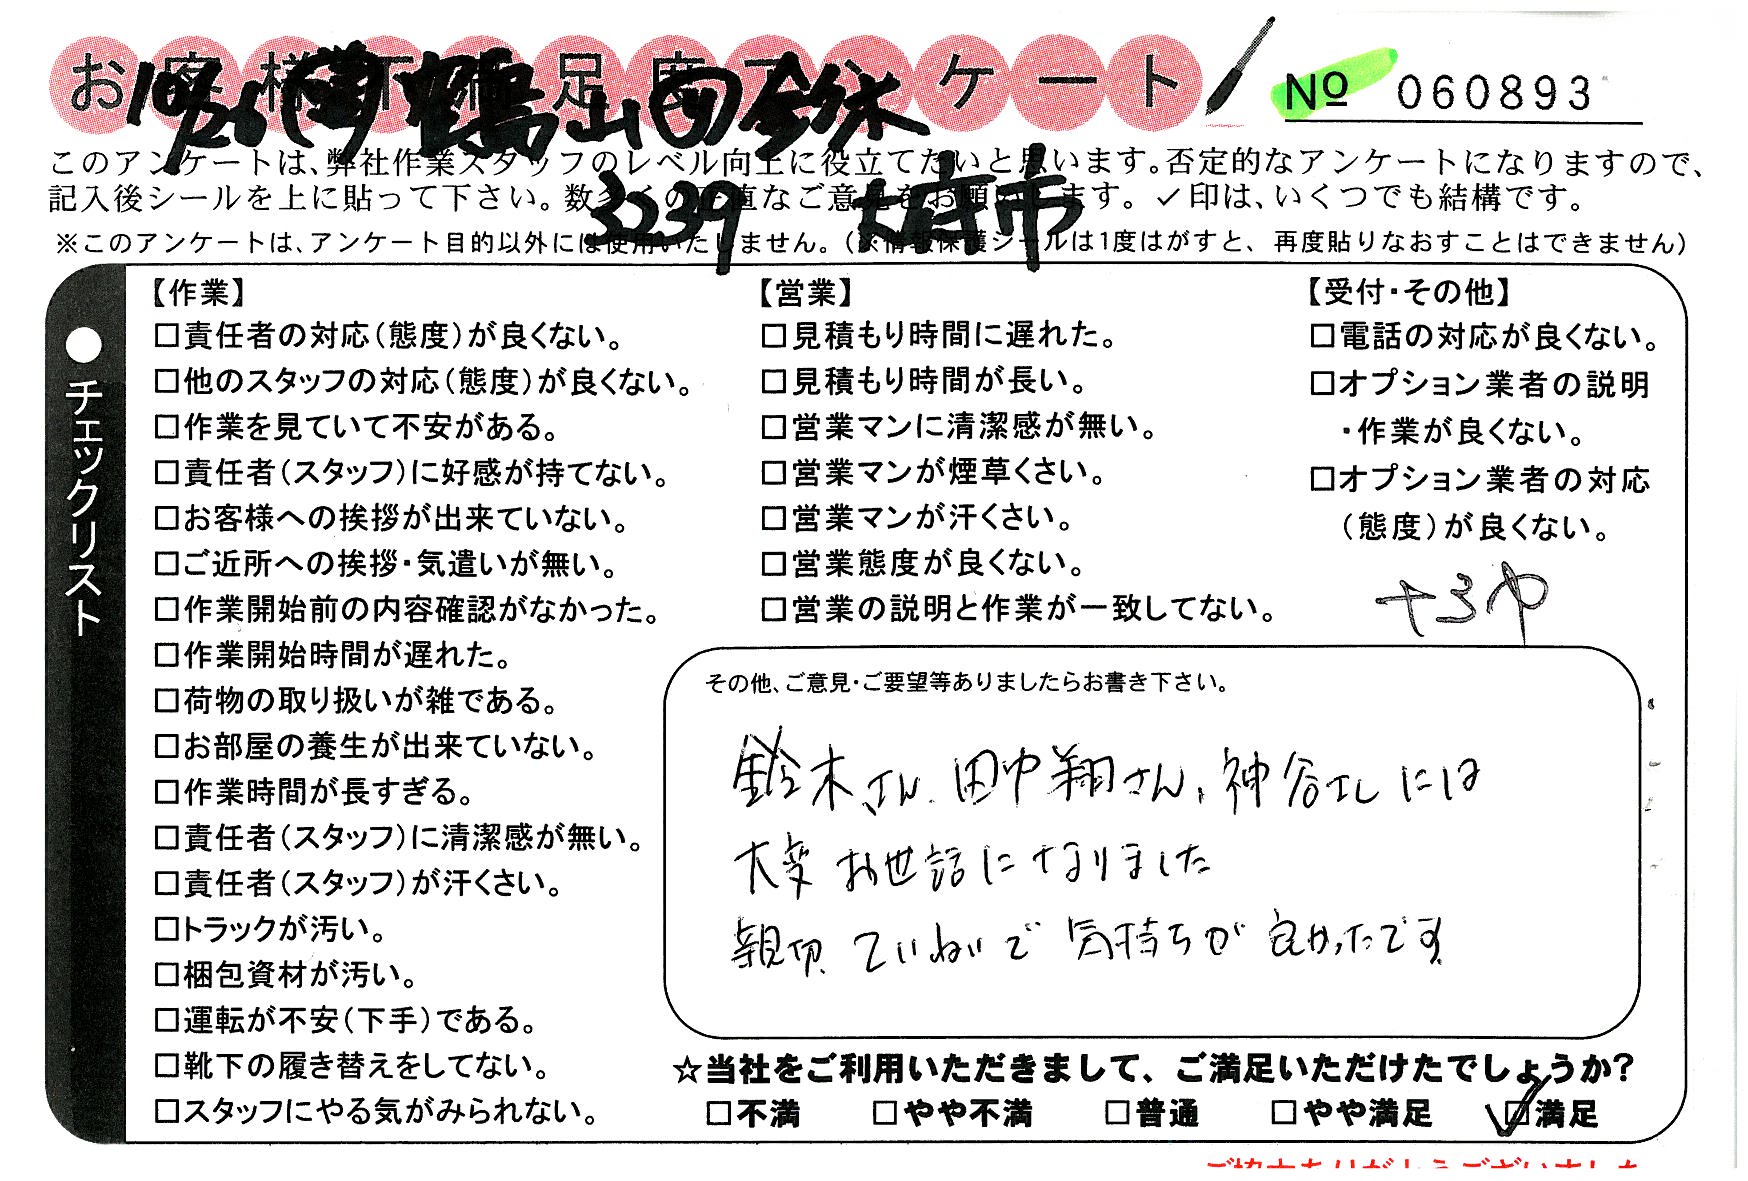 お客様不満足度アンケート
No 060893
10/26 鶴山田鈴木
3239 大府市
このアンケートは、弊社作業スタッフのレベル向上に役立てたいと思います。否定的なアンケートになりますので、
記入後シールを上に貼って下さい。数多くの正直なご意見をお願いします。✓印は、いくつでも結構です。
※このアンケートは、アンケート目的以外には使用いたしません。（※情報保護シールは1度はがすと、再度貼りなおすことはできません）
●チェックリスト
【作業】
□責任者の対応（態度）が良くない。
□他のスタッフの対応（態度）が良くない。
□作業を見ていて不安がある。
□責任者（スタッフ）に好感が持てない。
□お客様への挨拶が出来ていない。
□ご近所への挨拶・気遣いが無い。
□作業開始前の内容確認がなかった。
□作業開始時間が遅れた。
□荷物の取り扱いが雑である。
□お部屋の養生が出来ていない。
□作業時間が長すぎる。
□責任者（スタッフ）に清潔感が無い。
□責任者（スタッフ）が汗くさい。
□トラックが汚い。
□梱包資材が汚い。
□運転が不安（下手）である。
□靴下の履き替えをしてない。
□スタッフにやる気がみられない。
【営業】
□見積もり時間に遅れた。
□見積もり時間が長い。
□営業マンに清潔感が無い。
□営業マンが煙草くさい。
□営業マンが汗くさい。
□営業態度が良くない。
□営業の説明と作業が一致してない。
【受付・その他】
□電話の対応が良くない。
□オプション業者の説明
・作業が良くない。
□オプション業者の対応
（態度）が良くない。
その他、ご意見・ご要望等ありましたらお書き下さい。
鈴木さん、田中翔さん、神谷さんには
大変お世話になりました
親切、ていねいで気持ちが良かったです
☆当社をご利用いただきまして、ご満足いただけたでしょうか？
□不満 □やや不満 □普通 □やや満足 ☑満足
ご協力ありがとうございました